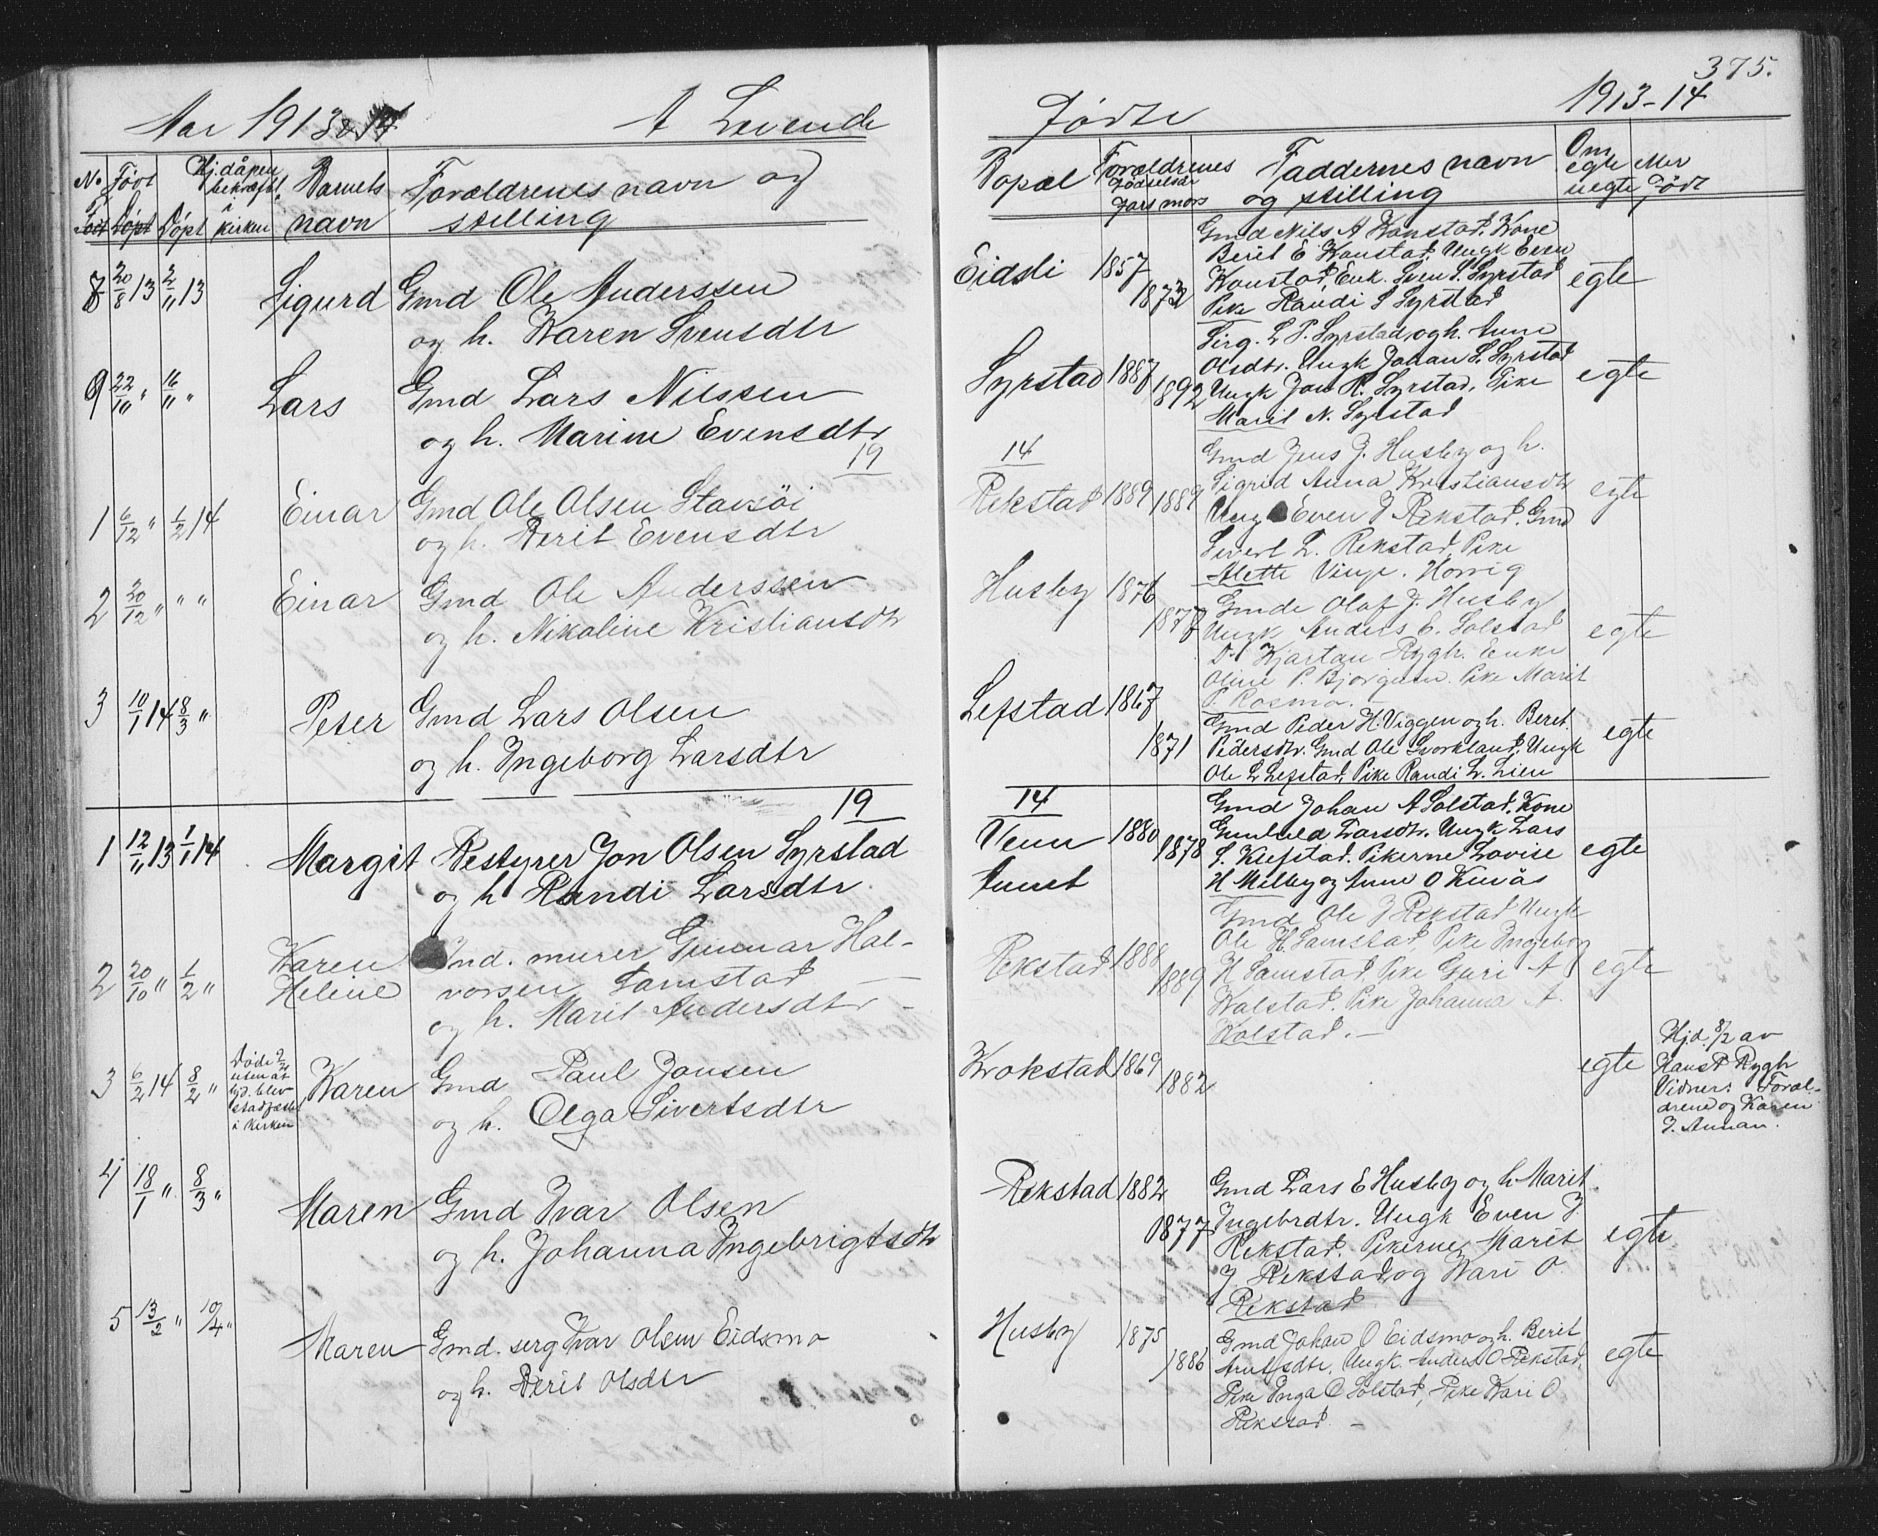 375.
Aar 1913 & 14 A Levende
Fødte 1913-14
No Født Hj.dåpen Barnets Forældrenes navn og
bekræft.
Født Døpt Døpt i kirken navn stilling
Bopæl Forældrenes Faddernes navn Om
Fødselsår egte Mer
fars mors og stilling uegte Født
8 20/8 13 2/11 13 Sigurd Gmd Ole Anderssen
og h. Karen Svensdtr
Eidsli 1857 1873 egte
Gmd Nils A Konstad. Kone
Berit E Konstad, Ungk Even
Konstad, Enk. Sven S. Syrstad
Pike Randi S Syrstad
9 22/10 " 16/11 " Lars Gmd Lars Nilssen
og h. Marine Evensdtr
Syrstad 1887 1892 egte
Sirg. L P. Syrstad, og h. Anne
Olsdtr. Ungk Johan L. Syrstad
Ungk Jon R. Syrstad, Pike
Marit N. Syrstad
19 14
1 6/12 " 1/2 14 Einar Gmd Ole Olsen Stavsøi
og h. Berit Evensdtr
Rekstad 1889 1889 egte
Gmd Jens J. Husby og h.
Sigrid Anna Kristiansdtr
Ungk Even J Rekstad. Gmd
Sivert L. Rekstad, Pike
Alette Vinge. Horrig
2 20/12 " " " Einar Gmd Ole Anderssen
og h. Nikoline Kristiansdtr
Husby 1876 1877 egte
Gmde Olaf J. Husby
Ungk Anders E. Solstad
Do Kjartan Rygh. Enke
Oline P Bjørgum. Pike Marit
P. Rosmo. -
3 10/1 14 8/3 " Peter Gmd Lars Olsen
og h. Ingeborg Larsdtr
Lefstad 1867 1871 egte
Gmd Peder H. Viggen og h. Beret
Pedersdtr. Gmd Ole Svorkland, Ungk
Ole L Lefstad, Pike Randi L. Lien
19 14
1 12/11 13 1/1 14 Margit Bestyrer Jon Olsen Syrstad
og h Randi Larsdtr
Venn 1880 1878 egte
Aunet
Gmd Johan A Solstad. Kone
Gunhild Larsdtr. Ungk Lars
L. Klefstad. Pikerne Lovise
H Melby og Anne O Kinås
2 20/10 " 1/2 " Karen Ind. murer Gunnar Hal-
Heline vorsen Lamstad -
og h. Marit Andersdtr -
Rekstad 1888 1889 egte
Gmd Ole J Rekstad Ungk
Ole H. Lamstad, Pike Ingebor
H Lamstad, Pike Guri A
Walstad. Pike Johanna A.
Walstad. -
3 6/2 14 8/2 " Døde 9/2 Karen Gmd Paul Jonsen
uten at
hjd. blev
stadfæstet
i Kirken og h. Olga Sivertsdtr
Krokstad 1869 1882 egte
Hjd. 8/2 av
Hans P Rygh
Vidner: Foræl-
drene og Karen
J. Aunan.
4 18/1 " 8/3 " Maren Gmd Ivar Olsen
og h. Johanna Ingebrigtsdtr
Rekstad 1882 1877 egte
Gmd Lars E Husby og h Marit
Ingebrdtr. Ungk Even J.
Rekstad. Pikerne Marit
J Rekstad, og Kari O.
Rekstad
5 13/2 " 10/4 " Maren Gmd. serg Ivar Olsen Eidsmo
og h. Berit Olsdtr
Husby 1875 1886 egte
Gmd Johan O Eidsmo og h. Berit
Arntsdtr, Ungk. Anders O Rekstad,
Pike Inga O Solstad, Pike Kari O
Rekstad. -